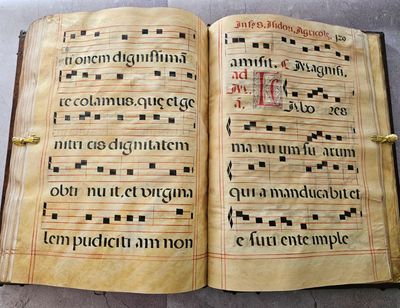 ti onem dignissimā
te colamus. quę et ge
nitri cis dignitatem
obti nu it. et virgina
lem pudiciti am non
S. Isidori, Agricolę. 120
amisit. Magnifi.
ad
M
ā. L Abo res
ma nu um su arum
qui a manducabit et
e suri ente imple